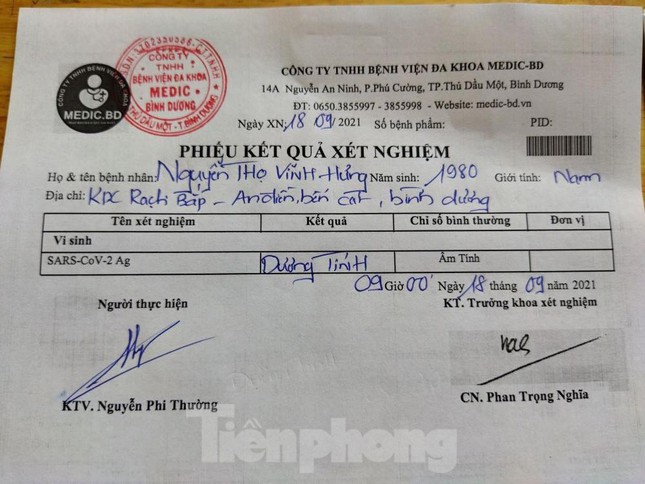 CÔNG TY TNHH BỆNH VIỆN ĐA KHOA MEDIC-BD
14A Nguyễn An Ninh, P.Phú Cường, TP.Thủ Dầu Một, Bình Dương
ĐT: 0650.3855997 - 3855998 - Website: medic-bd.vn
MEDIC.BD
CÔNG TY
TNHH
BỆNH VIỆN ĐA KHOA
MEDIC
BÌNH DƯƠNG
Ngày XN: 18 09/2021 Số bệnh phẩm: PID:
PHIẾU KẾT QUẢ XÉT NGHIỆM
Họ & tên bệnh nhân: Nguyễn Thọ Vĩnh Hưng Năm sinh: 1980 Giới tính: Nam
Địa chỉ: KDC Rạch Bắp - An điền, bến cát, bình dương
Tên xét nghiệm Kết quả Chỉ số bình thường Đơn vị
Vi sinh
SARS-CoV-2 Ag Dương TíNH Âm Tính
09 Giờ 00 Ngày 18 tháng 09 năm 2021
Người thực hiện KT. Trưởng khoa xét nghiệm
KTV. Nguyễn Phi Thường CN. Phan Trọng Nghĩa
Tiềnphong